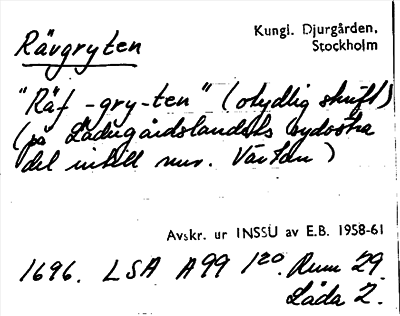 Rävgryten
Kungl. Djurgården,
Stockholm
"Räf - gry - ten" (otydlig skrift)
(på Ladugårdslandets sydöstra
del intill nuv. Värtan)
Avskr. ur INSSU av E.B. 1958-61
1696. LSA A99 1²⁰. Rum 29.
Låda 2.